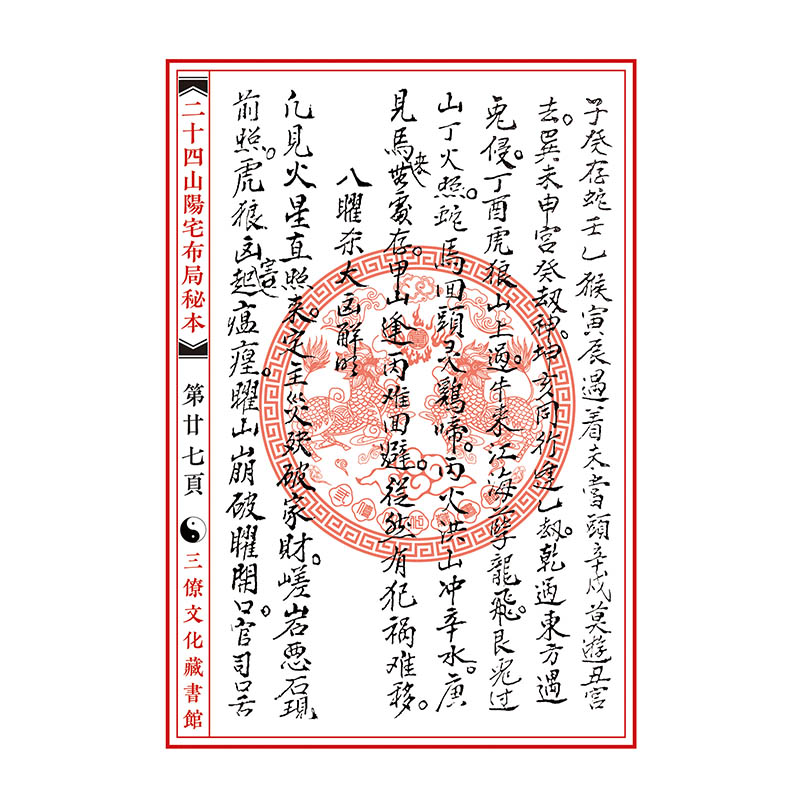 子癸存蛇壬乙猴寅辰遇着未當頭辛戌莫遊丑宮
去。巽未申宮癸刼神。坤亥同行逢乙刼。乾遇東方遇
兔侵。丁酉虎狼山上過。牛来江海孽龍飛。艮兔过
山丁火照蛇馬回頭灵鷄啼。丙火洪山冲辛水。庚
見馬無處存。甲山逢丙难回避。從然有犯祸难移。
八曜杀大凶解明
凢見火星直照来。定主災殃破家財。嵯岩悪石現
前照。虎狼凶起瘟瘟曜山崩破曜開口。官司口舌
二十四山陽宅布局秘本
第廿七頁
三僚文化藏書館